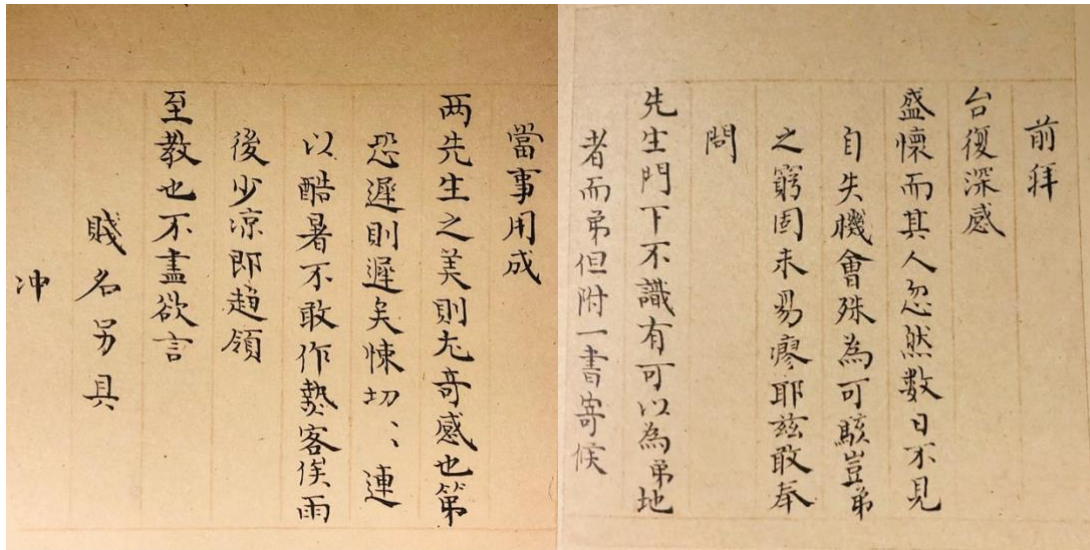 前拜
台復深感
盛懷而其人忽然數日不見
自失機會殊為可駭豈弟
之窮固未易瘳耶兹敢奉
問
先生門下不識有可以為弟地
者而弟但附一書寄候
當事用成
两先生之美則尢奇感也第
恐遲則遲矣悚切〻連
以酷暑不敢作熱客俟雨
後少凉即趋領
至教也不盡欲言
賤名另具
冲